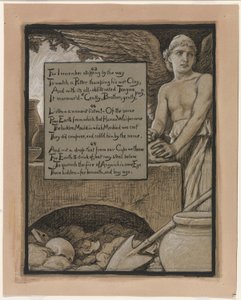 For I remember stopping by the way
To watch a Potter thumping his wet Clay,
And with its all-obliterated Tongue
It murmur'd—"Gently, Brother, gently, pray."
Listen—a moment listen!—Of the same
Poor Earth from which that Human Whisper came
The luckless Mould in which Mankind was cast
They did compose, and call'd him by the name.
And not a drop that from our Cups we throw
For Earth to drink of, but may steal below
To quench the fire of Anguish in some Eye
There hidden—far beneath, and long ago.